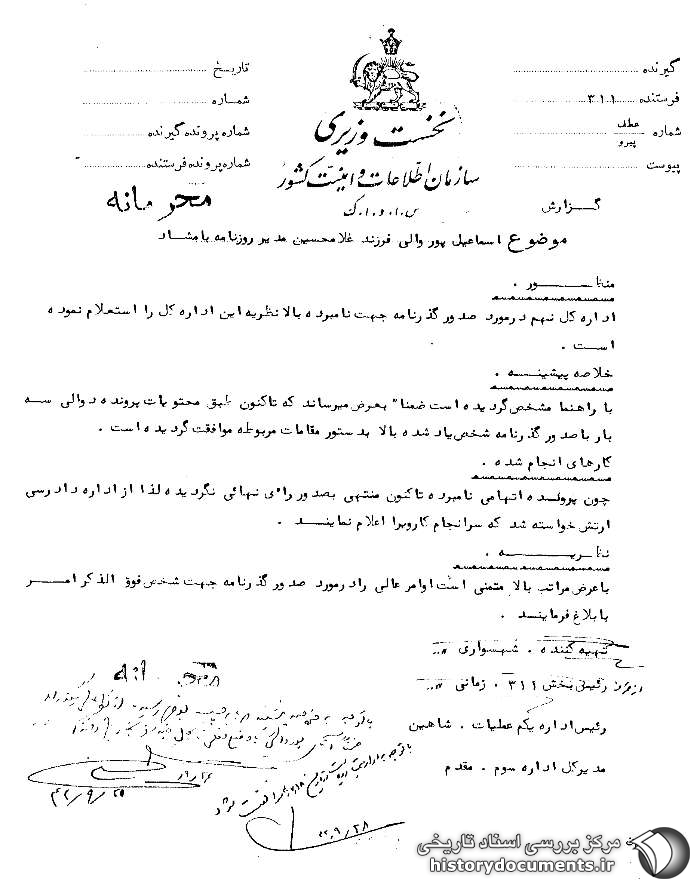 گیرنده
فرستنده ۳۱۱
شماره عطف پیرو
پیوست
نخست وزیری
سازمان اطلاعات و امنیت کشور
س.ا.و.ا.ک
تاریخ
شماره
شماره پرونده گیرنده
شماره پرونده فرستنده
محرمانه
گزارش
موضوع اسماعیل پور والی فرزند غلامحسین مدیر روزنامه بامشاد
منظور .
اداره کل نهم در مورد صدور گذرنامه جهت نامبرده بالا نظریه این اداره کل را استعلام نموده
است .
خلاصه پیشینه .
با راهنما مشخص گردیده است ضمنا" بعرض میرساند که تاکنون طبق محتویات پرونده دوالی سه
بار با صدور گذرنامه شخص یاد شده بالا بدستور مقامات مربوطه موافقت گردیده است .
کارهای انجام شده .
چون پرونده اتهامی نامبرده تاکنون منتهی بصدور رای نهائی نگردیده لذا از اداره دادرسی
ارتش خواسته شد که سرانجام کار ویرا اعلام نمایند .
نظریه .
با عرض مراتب بالا متمنی است اوامر عالی را در مورد صدور گذرنامه جهت شخص فوق الذکر امر
بابلاغ فرمایند .
تهیه کننده . شهسواری
رئیس بخش ۳۱۱ . زمانی
رئیس اداره یکم عملیات . شاهین
مدیر کل اداره سوم . مقدم
با توجه به
۴۲/۹/۲۵
با توجه به
۴۲/۹/۲۸
مرکز بررسی اسناد تاریخی
historydocuments.ir